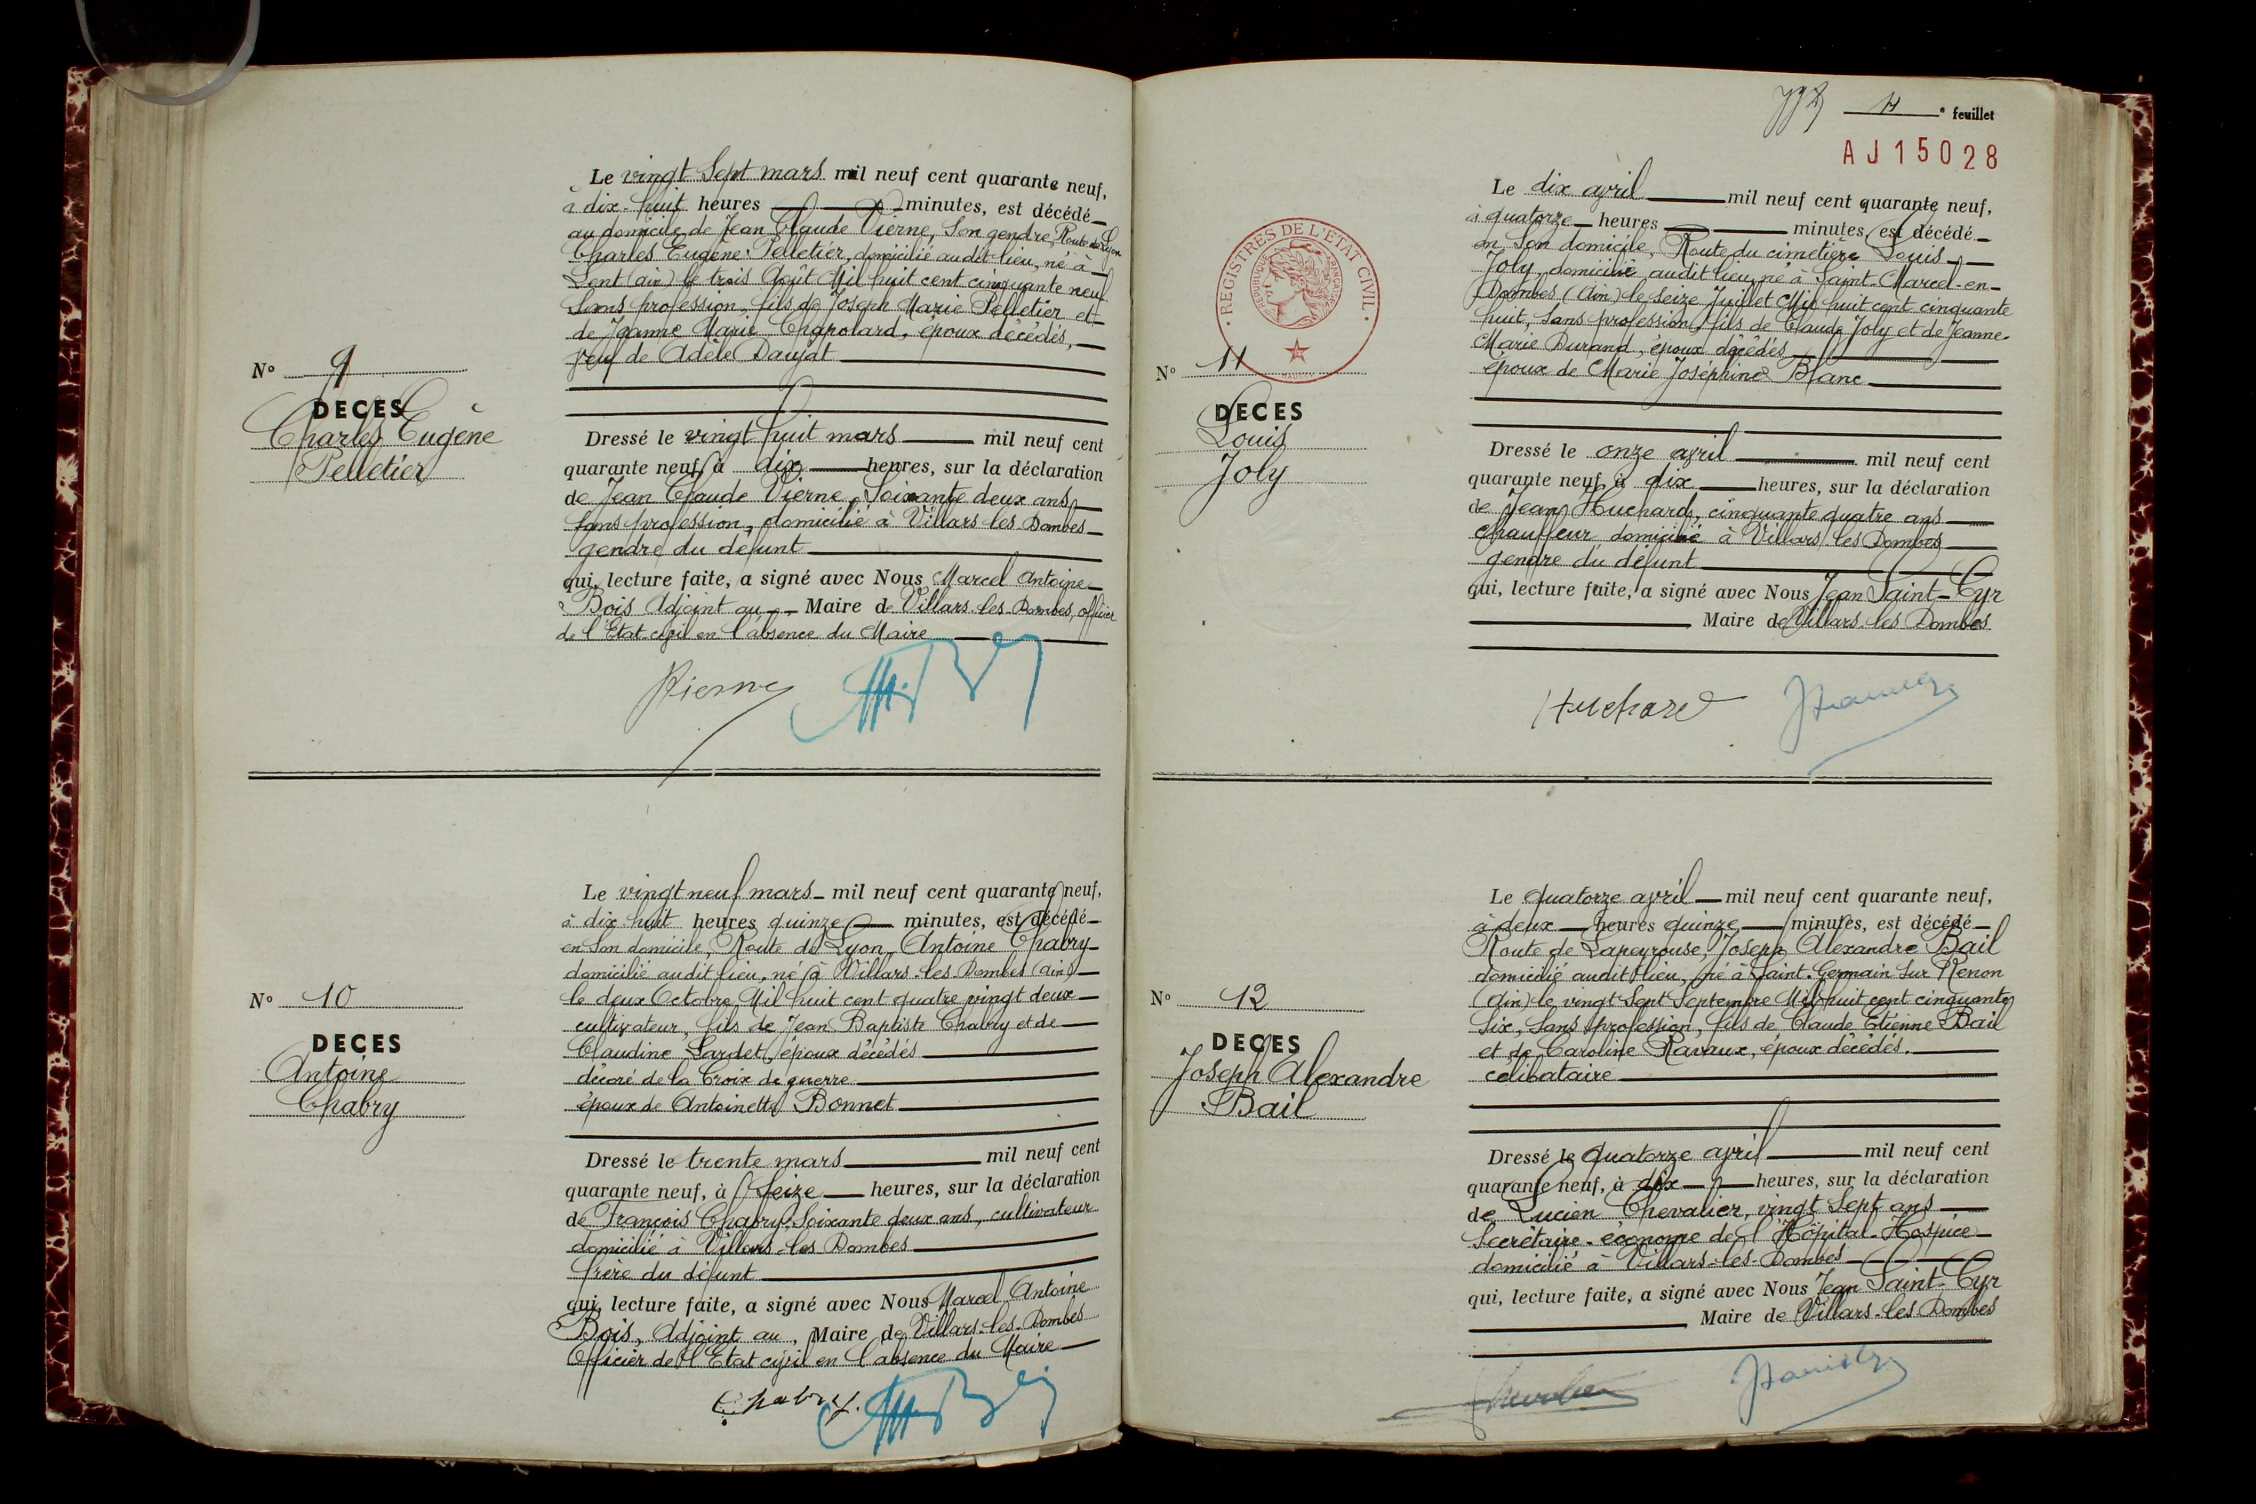 Le vingt Sept mars mil neuf cent quarante neuf,
à dix-huit heures minutes, est décédé
au domicile de Jean Claude Vierne, Son gendre, Route de Lyon
Charles Eugène Pelletier, domicilié audit lieu, né à
Lent (Ain) le trois Août Mil huit cent cinquante neuf
Sans profession, fils de Joseph Marie Pelletier et
de Jeanne Marie Chanolard, époux décédés,
veuf de Adèle Daujat
N° 9
DECES
Charles Eugène
Pelletier
Dressé le vingt huit mars mil neuf cent
quarante neuf, à dix heures, sur la déclaration
de Jean Claude Vierne, Soixante deux ans
Sans profession, domicilié à Villars les Dombes
gendre du défunt
qui, lecture faite, a signé avec Nous Marcel Antoine
Bois Adjoint au Maire de Villars-les-Dombes, Officier
de l'Etat-civil en l'absence du Maire
Vierne
Le vingt neuf mars mil neuf cent quarante neuf,
à dix huit heures quinze minutes, est décédé
en Son domicile, Route de Lyon, Antoine Chabry
domicilié audit lieu, né à Villars-les-Dombes (Ain)
le deux Octobre Mil huit cent quatre vingt deux
cultivateur, fils de Jean Baptiste Chabry et de
Claudine Lardet, époux décédés
décoré de la Croix de guerre
époux de Antoinette Bonnet
N° 10
DECES
Antoine
Chabry
Dressé le trente mars mil neuf cent
quarante neuf, à Seize heures, sur la déclaration
de François Chabry, Soixante deux ans, cultivateur
domicilié à Villars-les Dombes
frère du défunt
qui, lecture faite, a signé avec Nous Marcel Antoine
Bois, Adjoint au, Maire de Villars-les-Dombes
Officier de l'Etat civil en l'absence du Maire
Chabry.
e feuillet
AJ15028
REGISTRES DE L'ETAT CIVIL
REPUBLIQUE FRANÇAISE
Le dix avril mil neuf cent quarante neuf,
à quatorze heures minutes, est décédé
en Son domicile, Route du cimetière Louis
Joly, domicilié audit lieu, né à Saint-Marcel-en-
Dombes (Ain) le Seize Juillet Mil huit cent cinquante
huit, Sans profession, fils de Claude Joly et de Jeanne
Marie Durand, époux décédés
époux de Marie Joséphine Blanc
N° 11
DECES
Louis
Joly
Dressé le onze avril mil neuf cent
quarante neuf, à dix heures, sur la déclaration
de Jean Huchard, cinquante quatre ans
chauffeur domicilié à Villars les Dombes
gendre du défunt
qui, lecture faite, a signé avec Nous Jean Saint-Cyr
Maire de Villars-les Dombes
Huchard
Le quatorze avril mil neuf cent quarante neuf,
à deux heures quinze minutes, est décédé
Route de Lapeyrouse, Joseph Alexandre Bail
domicilié audit lieu, né à Saint-Germain Sur Renon
(Ain) le vingt Sept Septembre Mil huit cent cinquante
Six, Sans profession, fils de Claude Etienne Bail
et de Caroline Ravaux, époux décédés.
célibataire
N° 12
DECES
Joseph Alexandre
Bail
Dressé le quatorze avril mil neuf cent
quarante neuf, à dix heures, sur la déclaration
de Lucien Chevalier, vingt Sept ans
Secrétaire-économe de l'Hôpital-Hospice
domicilié à Villars-les-Dombes
qui, lecture faite, a signé avec Nous Jean Saint-Cyr
Maire de Villars-les Dombes